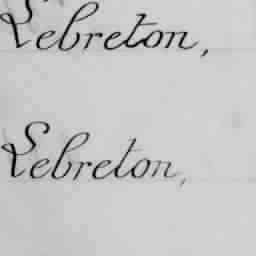 Lebreton,
Lebreton,